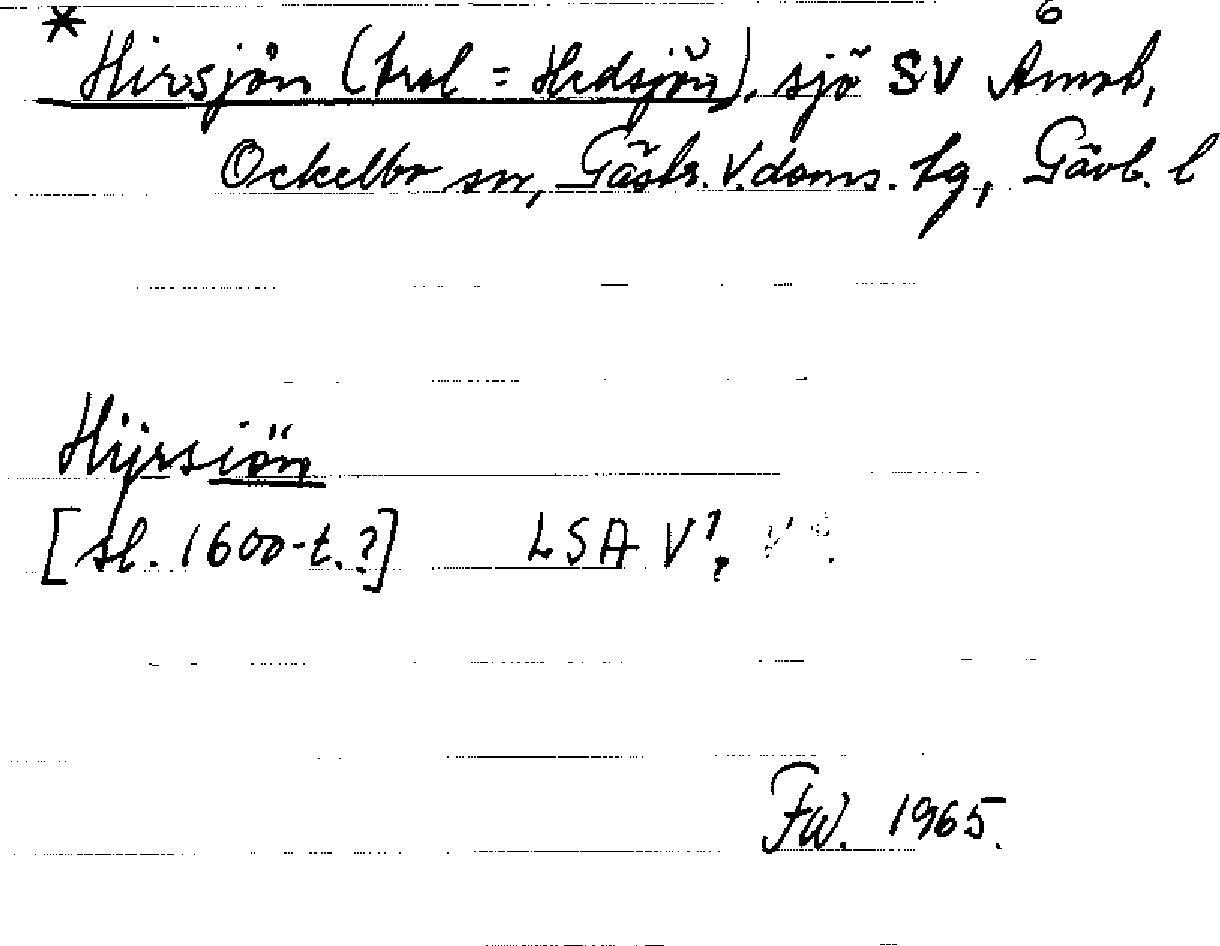 * Hirsjön (trol = Hedsjön), sjö SV Åmot,
Ockelbo sn, Gästr. V. doms. tg, Gävb. l
Hijrsiön
[sl. 1600-t.?] LSA V?
FW. 1965.